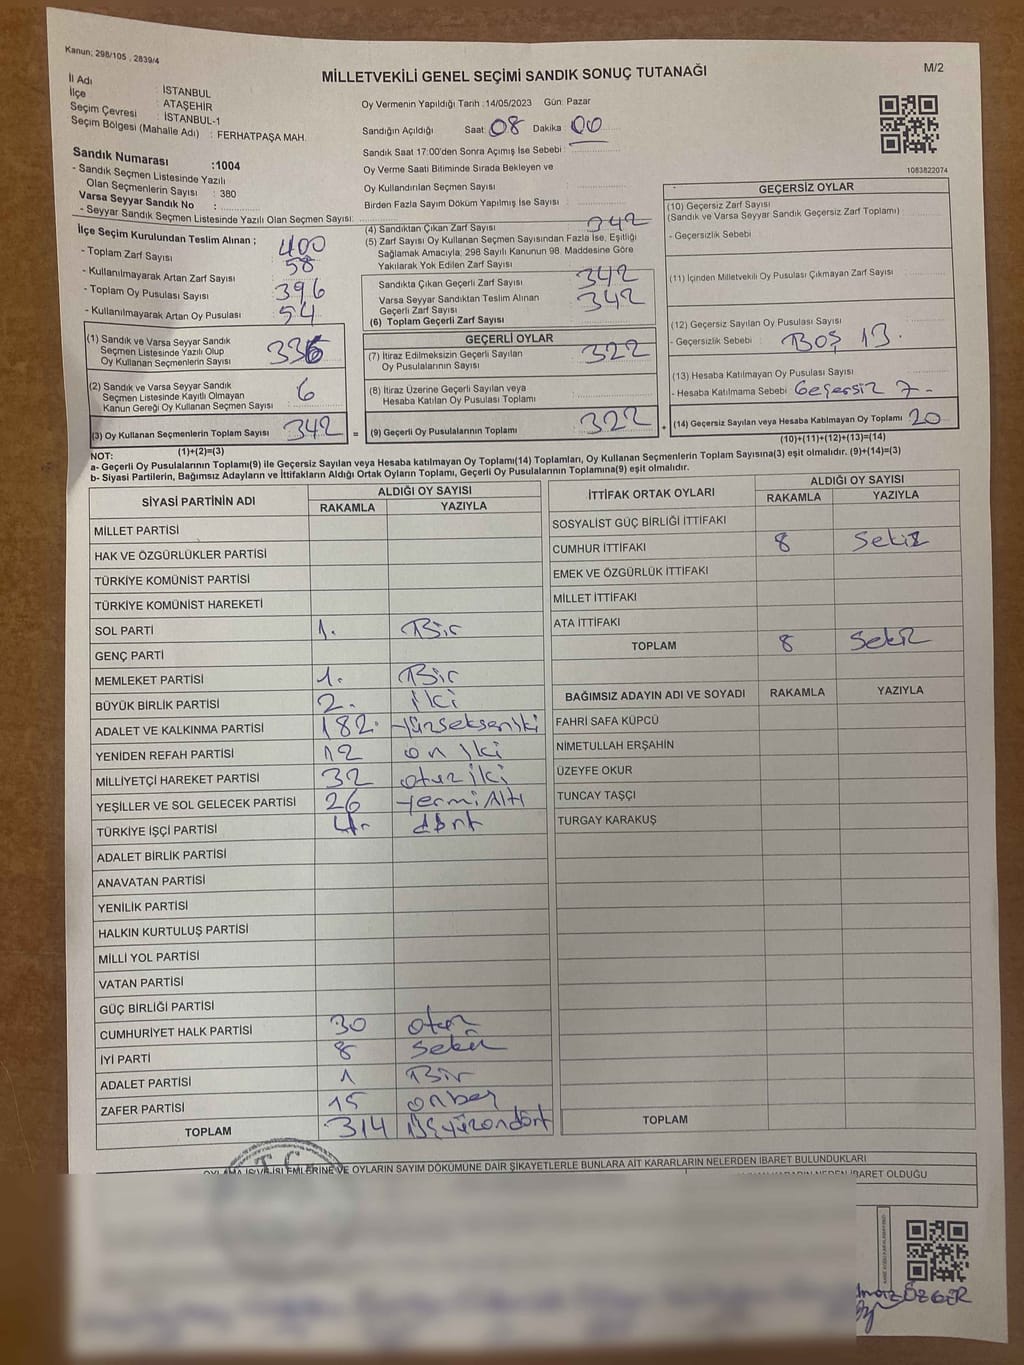 Kanun; 298/105 , 2839/4
M/2
MİLLETVEKİLİ GENEL SEÇİMİ SANDIK SONUÇ TUTANAĞI
İl Adı : İSTANBUL
İlçe : ATAŞEHİR
Seçim Çevresi : İSTANBUL-1
Seçim Bölgesi (Mahalle Adı) : FERHATPAŞA MAH.
Sandık Numarası :1004
- Sandık Seçmen Listesinde Yazılı
Olan Seçmenlerin Sayısı : 380
Varsa Seyyar Sandık No :
- Seyyar Sandık Seçmen Listesinde Yazılı Olan Seçmen Sayısı:
Oy Vermenin Yapıldığı Tarih :14/05/2023 Gün: Pazar
Sandığın Açıldığı Saat: 08 Dakika 00
Sandık Saat 17:00'den Sonra Açımış İse Sebebi :
Oy Verme Saati Bitiminde Sırada Bekleyen ve
Oy Kullandırılan Seçmen Sayısı :
Birden Fazla Sayım Döküm Yapılmış İse Sayısı :
1083822074
İlçe Seçim Kurulundan Teslim Alınan ;
- Toplam Zarf Sayısı : 400
- Kullanılmayarak Artan Zarf Sayısı : 58
- Toplam Oy Pusulası Sayısı : 396
- Kullanılmayarak Artan Oy Pusulası : 54
(1) Sandık ve Varsa Seyyar Sandık
Seçmen Listesinde Yazılı Olup
Oy Kullanan Seçmenlerin Sayısı 336
(2) Sandık ve Varsa Seyyar Sandık
Seçmen Listesinde Kayıtlı Olmayan
Kanun Gereği Oy Kullanan Seçmen Sayısı 6
(3) Oy Kullanan Seçmenlerin Toplam Sayısı 342
(1)+(2)=(3)
(4) Sandıktan Çıkan Zarf Sayısı 342
(5) Zarf Sayısı Oy Kullanan Seçmen Sayısından Fazla İse, Eşitliği
Sağlamak Amacıyla; 298 Sayılı Kanunun 98. Maddesine Göre
Yakılarak Yok Edilen Zarf Sayısı
Sandıkta Çıkan Geçerli Zarf Sayısı 342
Varsa Seyyar Sandıktan Teslim Alınan
Geçerli Zarf Sayısı 342
(6) Toplam Geçerli Zarf Sayısı
GEÇERLİ OYLAR
(7) İtiraz Edilmeksizin Geçerli Sayılan
Oy Pusulalarının Sayısı: 322
(8) İtiraz Üzerine Geçerli Sayılan veya
Hesaba Katılan Oy Pusulası Toplamı
= (9) Geçerli Oy Pusulalarının Toplamı 322
GEÇERSİZ OYLAR
(10) Geçersiz Zarf Sayısı
(Sandık ve Varsa Seyyar Sandık Geçersiz Zarf Toplamı) :
- Geçersizlik Sebebi :
(11) İçinden Milletvekili Oy Pusulası Çıkmayan Zarf Sayısı
(12) Geçersiz Sayılan Oy Pusulası Sayısı :
- Geçersizlik Sebebi : BOŞ 13.
(13) Hesaba Katılmayan Oy Pusulası Sayısı :
- Hesaba Katılmama Sebebi Geçersiz 7 -
+ (14) Geçersiz Sayılan veya Hesaba Katılmayan Oy Toplamı 20
(10)+(11)+(12)+(13)=(14)
NOT:
a- Geçerli Oy Pusulalarının Toplamı(9) ile Geçersiz Sayılan veya Hesaba katılmayan Oy Toplamı(14) Toplamları, Oy Kullanan Seçmenlerin Toplam Sayısına(3) eşit olmalıdır. (9)+(14)=(3)
b- Siyasi Partilerin, Bağımsız Adayların ve İttifakların Aldığı Ortak Oyların Toplamı, Geçerli Oy Pusulalarının Toplamına(9) eşit olmalıdır.
SİYASİ PARTİNİN ADI ALDIĞI OY SAYISI
RAKAMLA YAZIYLA
MİLLET PARTİSİ
HAK VE ÖZGÜRLÜKLER PARTİSİ
TÜRKİYE KOMÜNİST PARTİSİ
TÜRKİYE KOMÜNİST HAREKETİ
SOL PARTİ 1. Bir
GENÇ PARTİ
MEMLEKET PARTİSİ 1. Bir
BÜYÜK BİRLİK PARTİSİ 2. iki
ADALET VE KALKINMA PARTİSİ 182. yüzseksen iki
YENİDEN REFAH PARTİSİ 12 on iki
MİLLİYETÇİ HAREKET PARTİSİ 32 otuz iki
YEŞİLLER VE SOL GELECEK PARTİSİ 26 yermi Altı
TÜRKİYE İŞÇİ PARTİSİ 4. dört
ADALET BİRLİK PARTİSİ
ANAVATAN PARTİSİ
YENİLİK PARTİSİ
HALKIN KURTULUŞ PARTİSİ
MİLLİ YOL PARTİSİ
VATAN PARTİSİ
GÜÇ BİRLİĞİ PARTİSİ
CUMHURİYET HALK PARTİSİ 30 otuz
İYİ PARTİ 8 sekiz
ADALET PARTİSİ 1 Bir
ZAFER PARTİSİ 15 onbeş
TOPLAM 314 Üçyüzondört
İTTİFAK ORTAK OYLARI ALDIĞI OY SAYISI
RAKAMLA YAZIYLA
SOSYALİST GÜÇ BİRLİĞİ İTTİFAKI
CUMHUR İTTİFAKI 8 Sekiz
EMEK VE ÖZGÜRLÜK İTTİFAKI
MİLLET İTTİFAKI
ATA İTTİFAKI
TOPLAM 8 Sekiz
BAĞIMSIZ ADAYIN ADI VE SOYADI RAKAMLA YAZIYLA
FAHRİ SAFA KÜPCÜ
NİMETULLAH ERŞAHİN
ÜZEYFE OKUR
TUNCAY TAŞÇI
TURGAY KARAKUŞ
TOPLAM
OYLAMA İŞ VE İŞLEMLERİNE VE OYLARIN SAYIM DÖKÜMÜNE DAİR ŞİKAYETLERLE BUNLARA AİT KARARLARIN NELERDEN İBARET BULUNDUKLARI
KARARIN NEDEN İBARET OLDUĞU
T.C.
ÖZGÜR